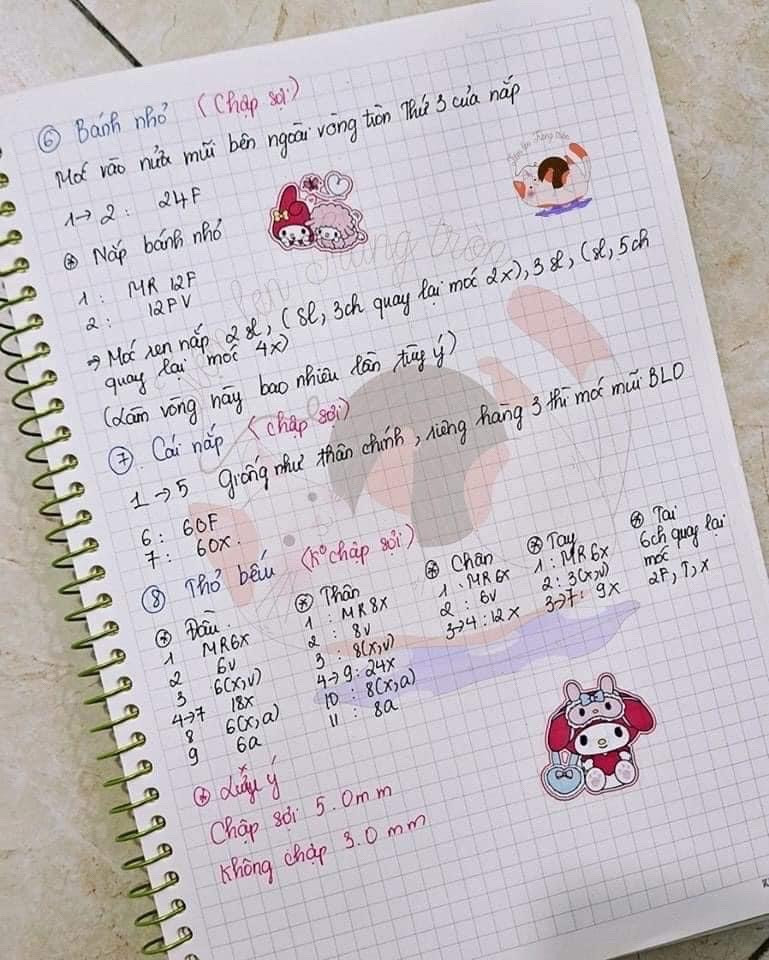 ⑥ Bánh nhỏ (Chập sợi)
Móc vào nửa mũi bên ngoài vòng tròn thứ 3 của nắp
1→2: 24F
⊛ Nắp bánh nhỏ
1: MR 12F
2: 12FV
⇒ Móc ren nắp 2sl, (sl, 3ch quay lại móc 2x), 3sl, (sl, 5ch
quay lại móc 4x)
(Làm vòng này bao nhiêu lần tùy ý)
⑦. Cái nắp (chập sợi)
1→5 giống như thân chính, riêng hàng 3 thì móc mũi BLO
6: 60F
7: 60X.
⑧ Thỏ bếu (K° chập sợi)
⊛ Đầu.
1 MR6x
2 6v
3 6(x,v)
4→7 18x
8 6(x,a)
9 6a
⊛ Thân
1: MR8x
2: 8v
3: 8(x,v)
4→9: 24x
10: 8(x,a)
11: 8a
⊛ Chân
1: MR6x
2: 6v
3→4: 12x
⊛ Tay
1: MR6x
2: 3(x,v)
3→7: 9x
⊛ Tai
6ch quay lại
móc
2F, T, x
⊛ Lưu ý
Chập sợi 5.0mm
Không chập 3.0mm
Tiệm len Trăng tròn